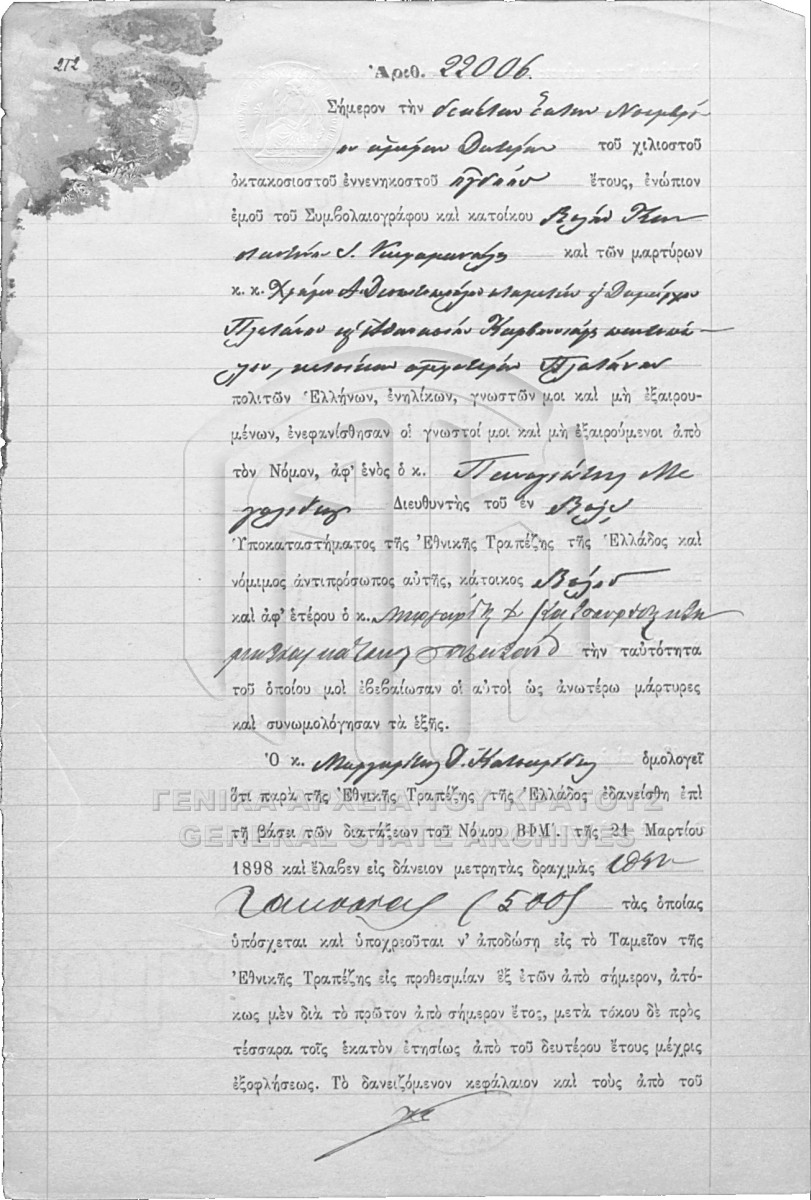 212
Ἀριθ. 22006.
Σήμερον τὴν δεκάτην ἕκτην Νοεμβρί-
ου ἡμέραν Δευτέραν τοῦ χιλιοστοῦ
ὀκτακοσιοστοῦ ἐννενηκοστοῦ ὀγδόου ἔτους, ἐνώπιον
ἐμοῦ τοῦ Συμβολαιογράφου καὶ κατοίκου Βόλου Κων
σταντίνου καὶ τῶν μαρτύρων
κ. κ.
Πλατάνου Ἀθανασίου
κατοίκων ἀμφοτέρων Πλατάνου
πολιτῶν Ἑλλήνων, ἐνηλίκων, γνωστῶν μοι καὶ μὴ ἐξαιρου-
μένων, ἐνεφανίσθησαν οἱ γνωστοί μοι καὶ μὴ ἐξαιρούμενοι ἀπὸ
τὸν Νόμον, ἀφ' ἑνὸς ὁ κ. Παναγιώτης Με
Διευθυντὴς τοῦ ἐν Βόλῳ
Ὑποκαταστήματος τῆς Ἐθνικῆς Τραπέζης τῆς Ἑλλάδος καὶ
νόμιμος ἀντιπρόσωπος αὐτῆς, κάτοικος Βόλου
καὶ ἀφ' ἑτέρου ὁ κ.
τὴν ταὐτότητα
τοῦ ὁποίου μοὶ ἐβεβαίωσαν οἱ αὐτοὶ ὡς ἀνωτέρω μάρτυρες
καὶ συνωμολόγησαν τὰ ἑξῆς.
Ὁ κ. Μαργαρίτης ὁμολογεῖ
ὅτι παρὰ τῆς Ἐθνικῆς Τραπέζης τῆς Ἑλλάδος ἐδανείσθη ἐπὶ
ΓΕΝΙΚΑ ΑΡΧΕΙΑ ΤΟΥ ΚΡΑΤΟΥΣ
τῇ βάσει τῶν διατάξεων τοῦ Νόμου ΒΦΜ'. τῆς 21 Μαρτίου
GENERAL STATE ARCHIVES
1898 καὶ ἔλαβεν εἰς δάνειον μετρητὰς δραχμὰς πεν
τακοσίας (500) τὰς ὁποίας
ὑπόσχεται καὶ ὑποχρεοῦται ν' ἀποδώσῃ εἰς τὸ Ταμεῖον τῆς
Ἐθνικῆς Τραπέζης εἰς προθεσμίαν ἓξ ἐτῶν ἀπὸ σήμερον, ἀτό-
κως μὲν διὰ τὸ πρῶτον ἀπὸ σήμερον ἔτος, μετὰ τόκου δὲ πρὸς
τέσσαρα τοῖς ἑκατὸν ἐτησίως ἀπὸ τοῦ δευτέρου ἔτους μέχρις
ἐξοφλήσεως. Τὸ δανειζόμενον κεφάλαιον καὶ τοὺς ἀπὸ τοῦ